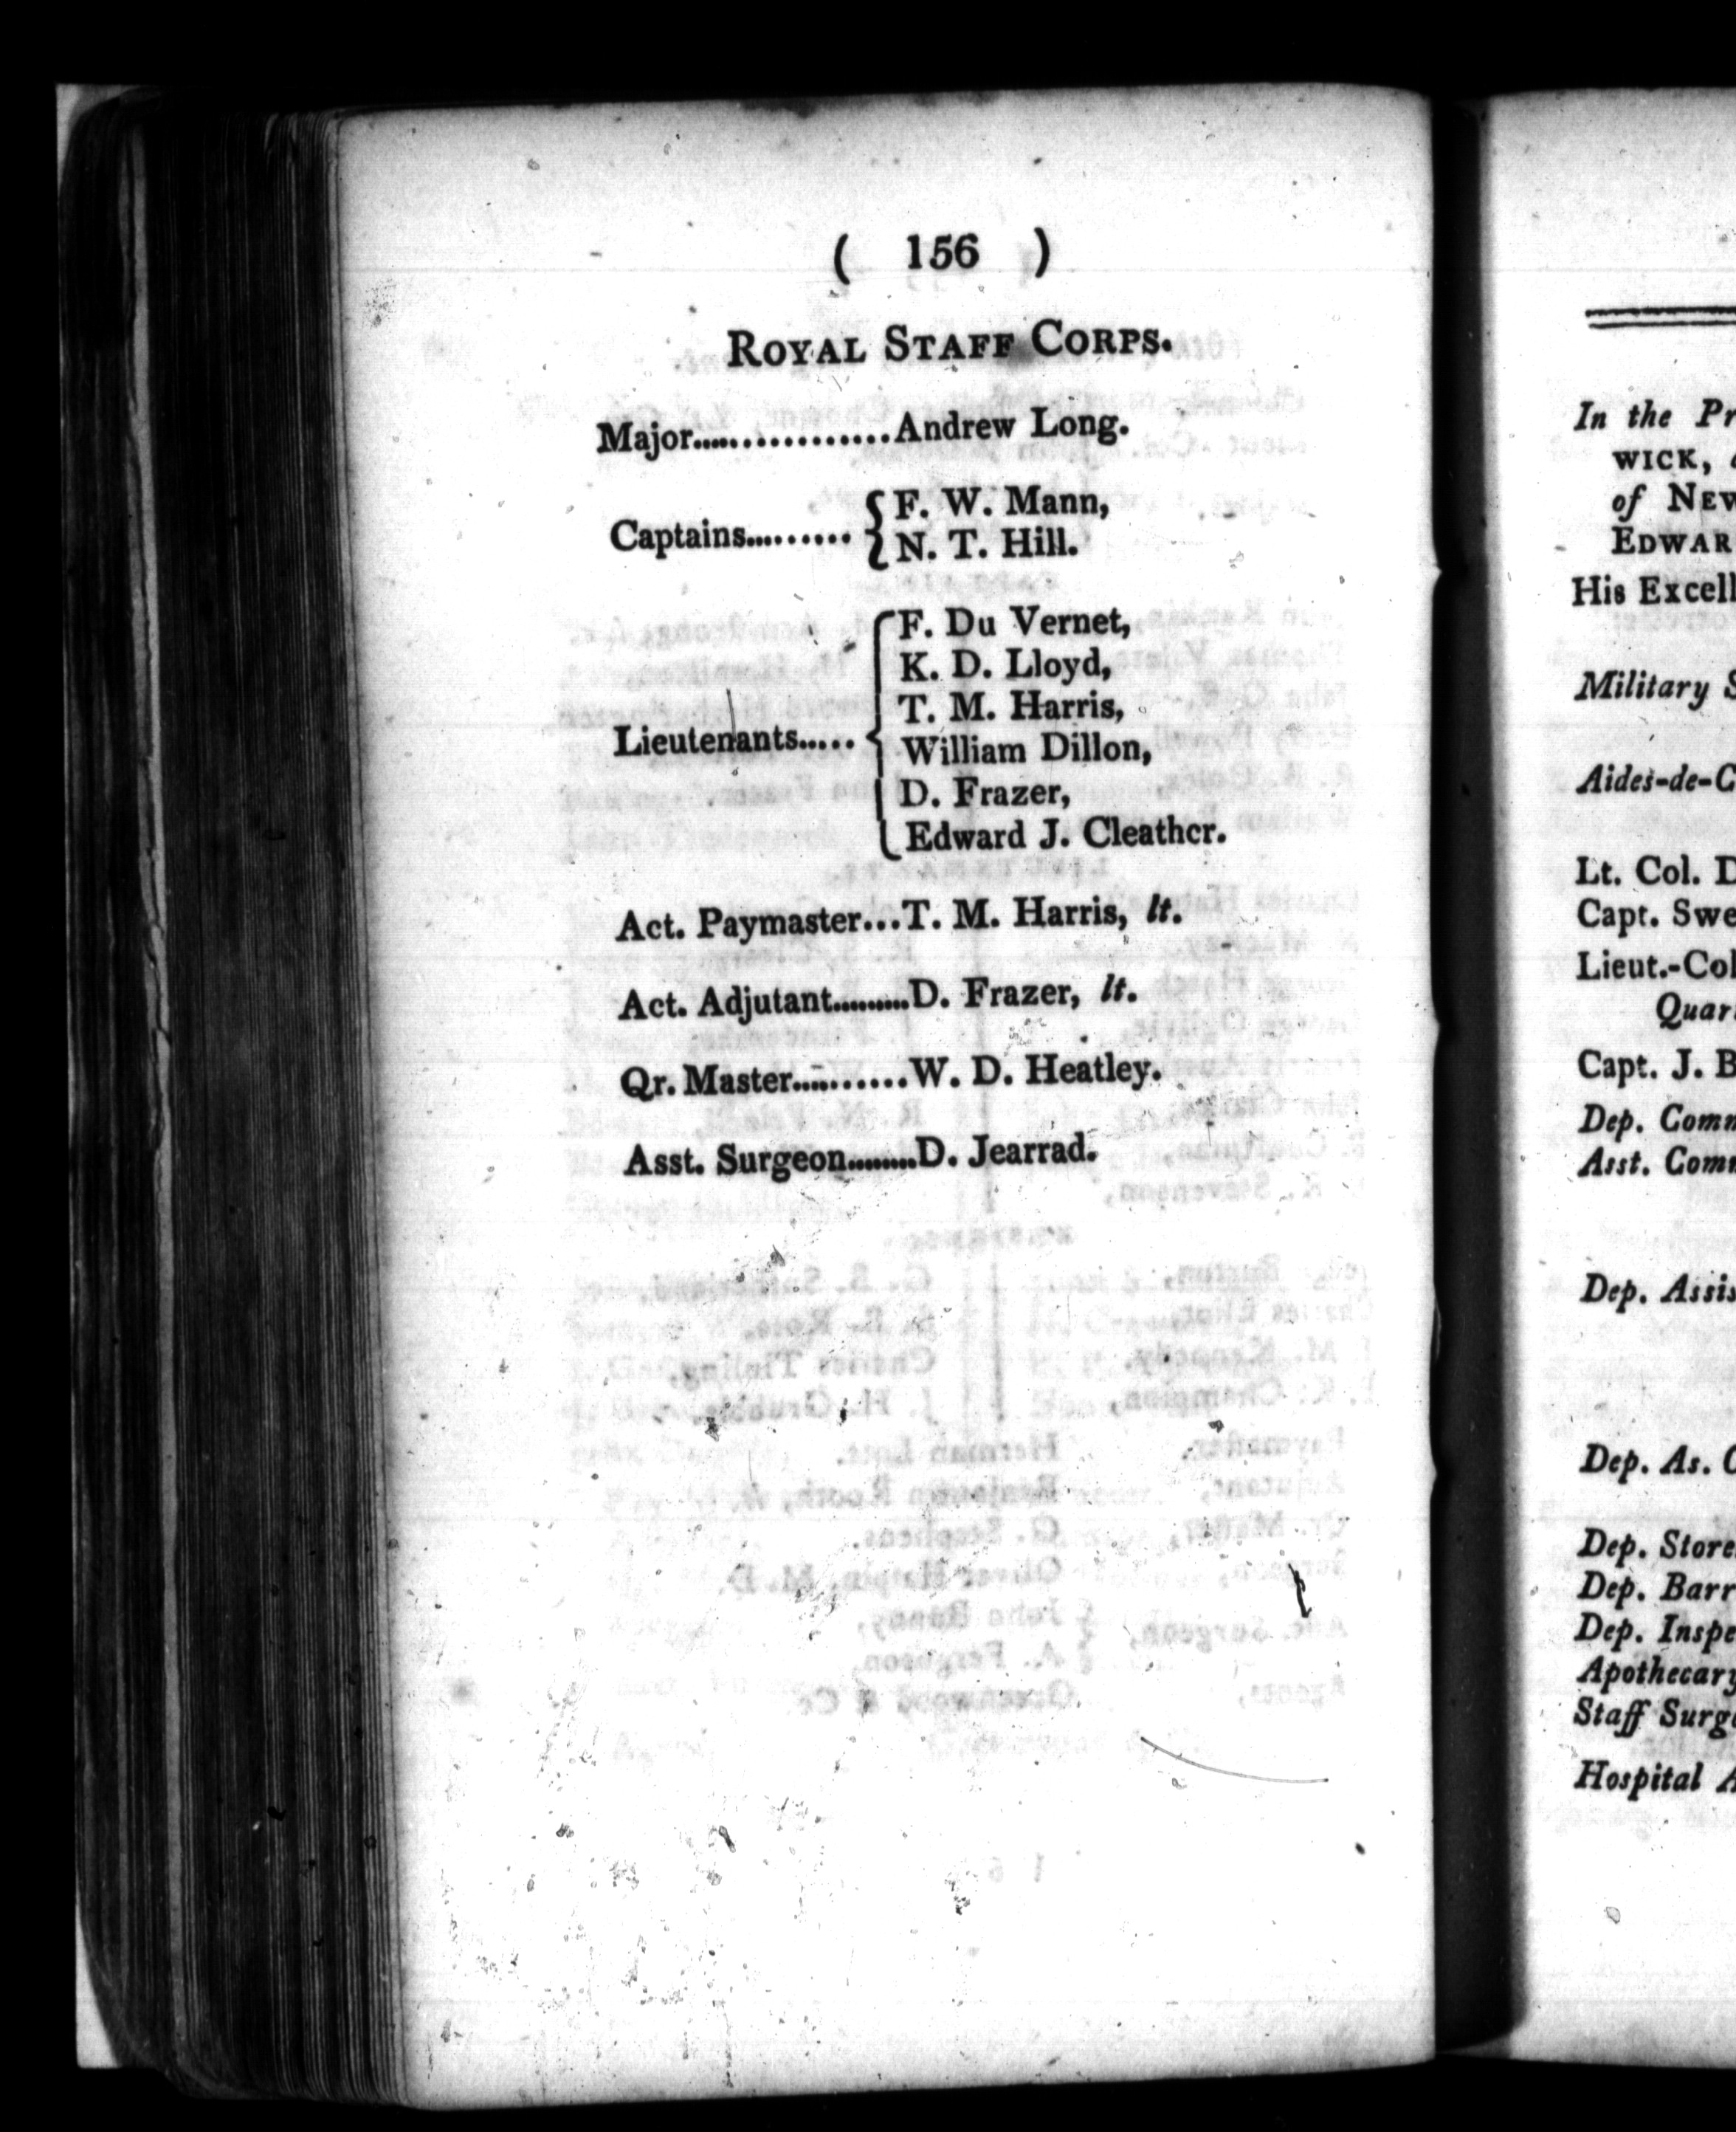 ( 156 )
ROYAL STAFF CORPS.
Major...............Andrew Long.
Captains.......... { F. W. Mann,
N. T. Hill.
Lieutenants..... { F. Du Vernet,
K. D. Lloyd,
T. M. Harris,
William Dillon,
D. Frazer,
Edward J. Cleather.
Act. Paymaster...T. M. Harris, lt.
Act. Adjutant.........D. Frazer, lt.
Qr. Master..........W. D. Heatley.
Asst. Surgeon........D. Jearrad.
In the Pr
WICK,
of NEW
EDWAR
His Excell
Military S
Aides-de-C
Lt. Col. D
Capt. Swe
Lieut.-Col
Quar
Capt. J. B
Dep. Comm
Asst. Comm
Dep. Assis
Dep. As. C
Dep. Store
Dep. Barr
Dep. Inspe
Apothecary
Staff Surge
Hospital A